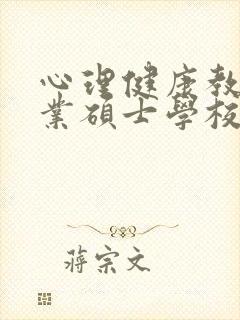 心理健康教
業碩士學校
蔣宗文